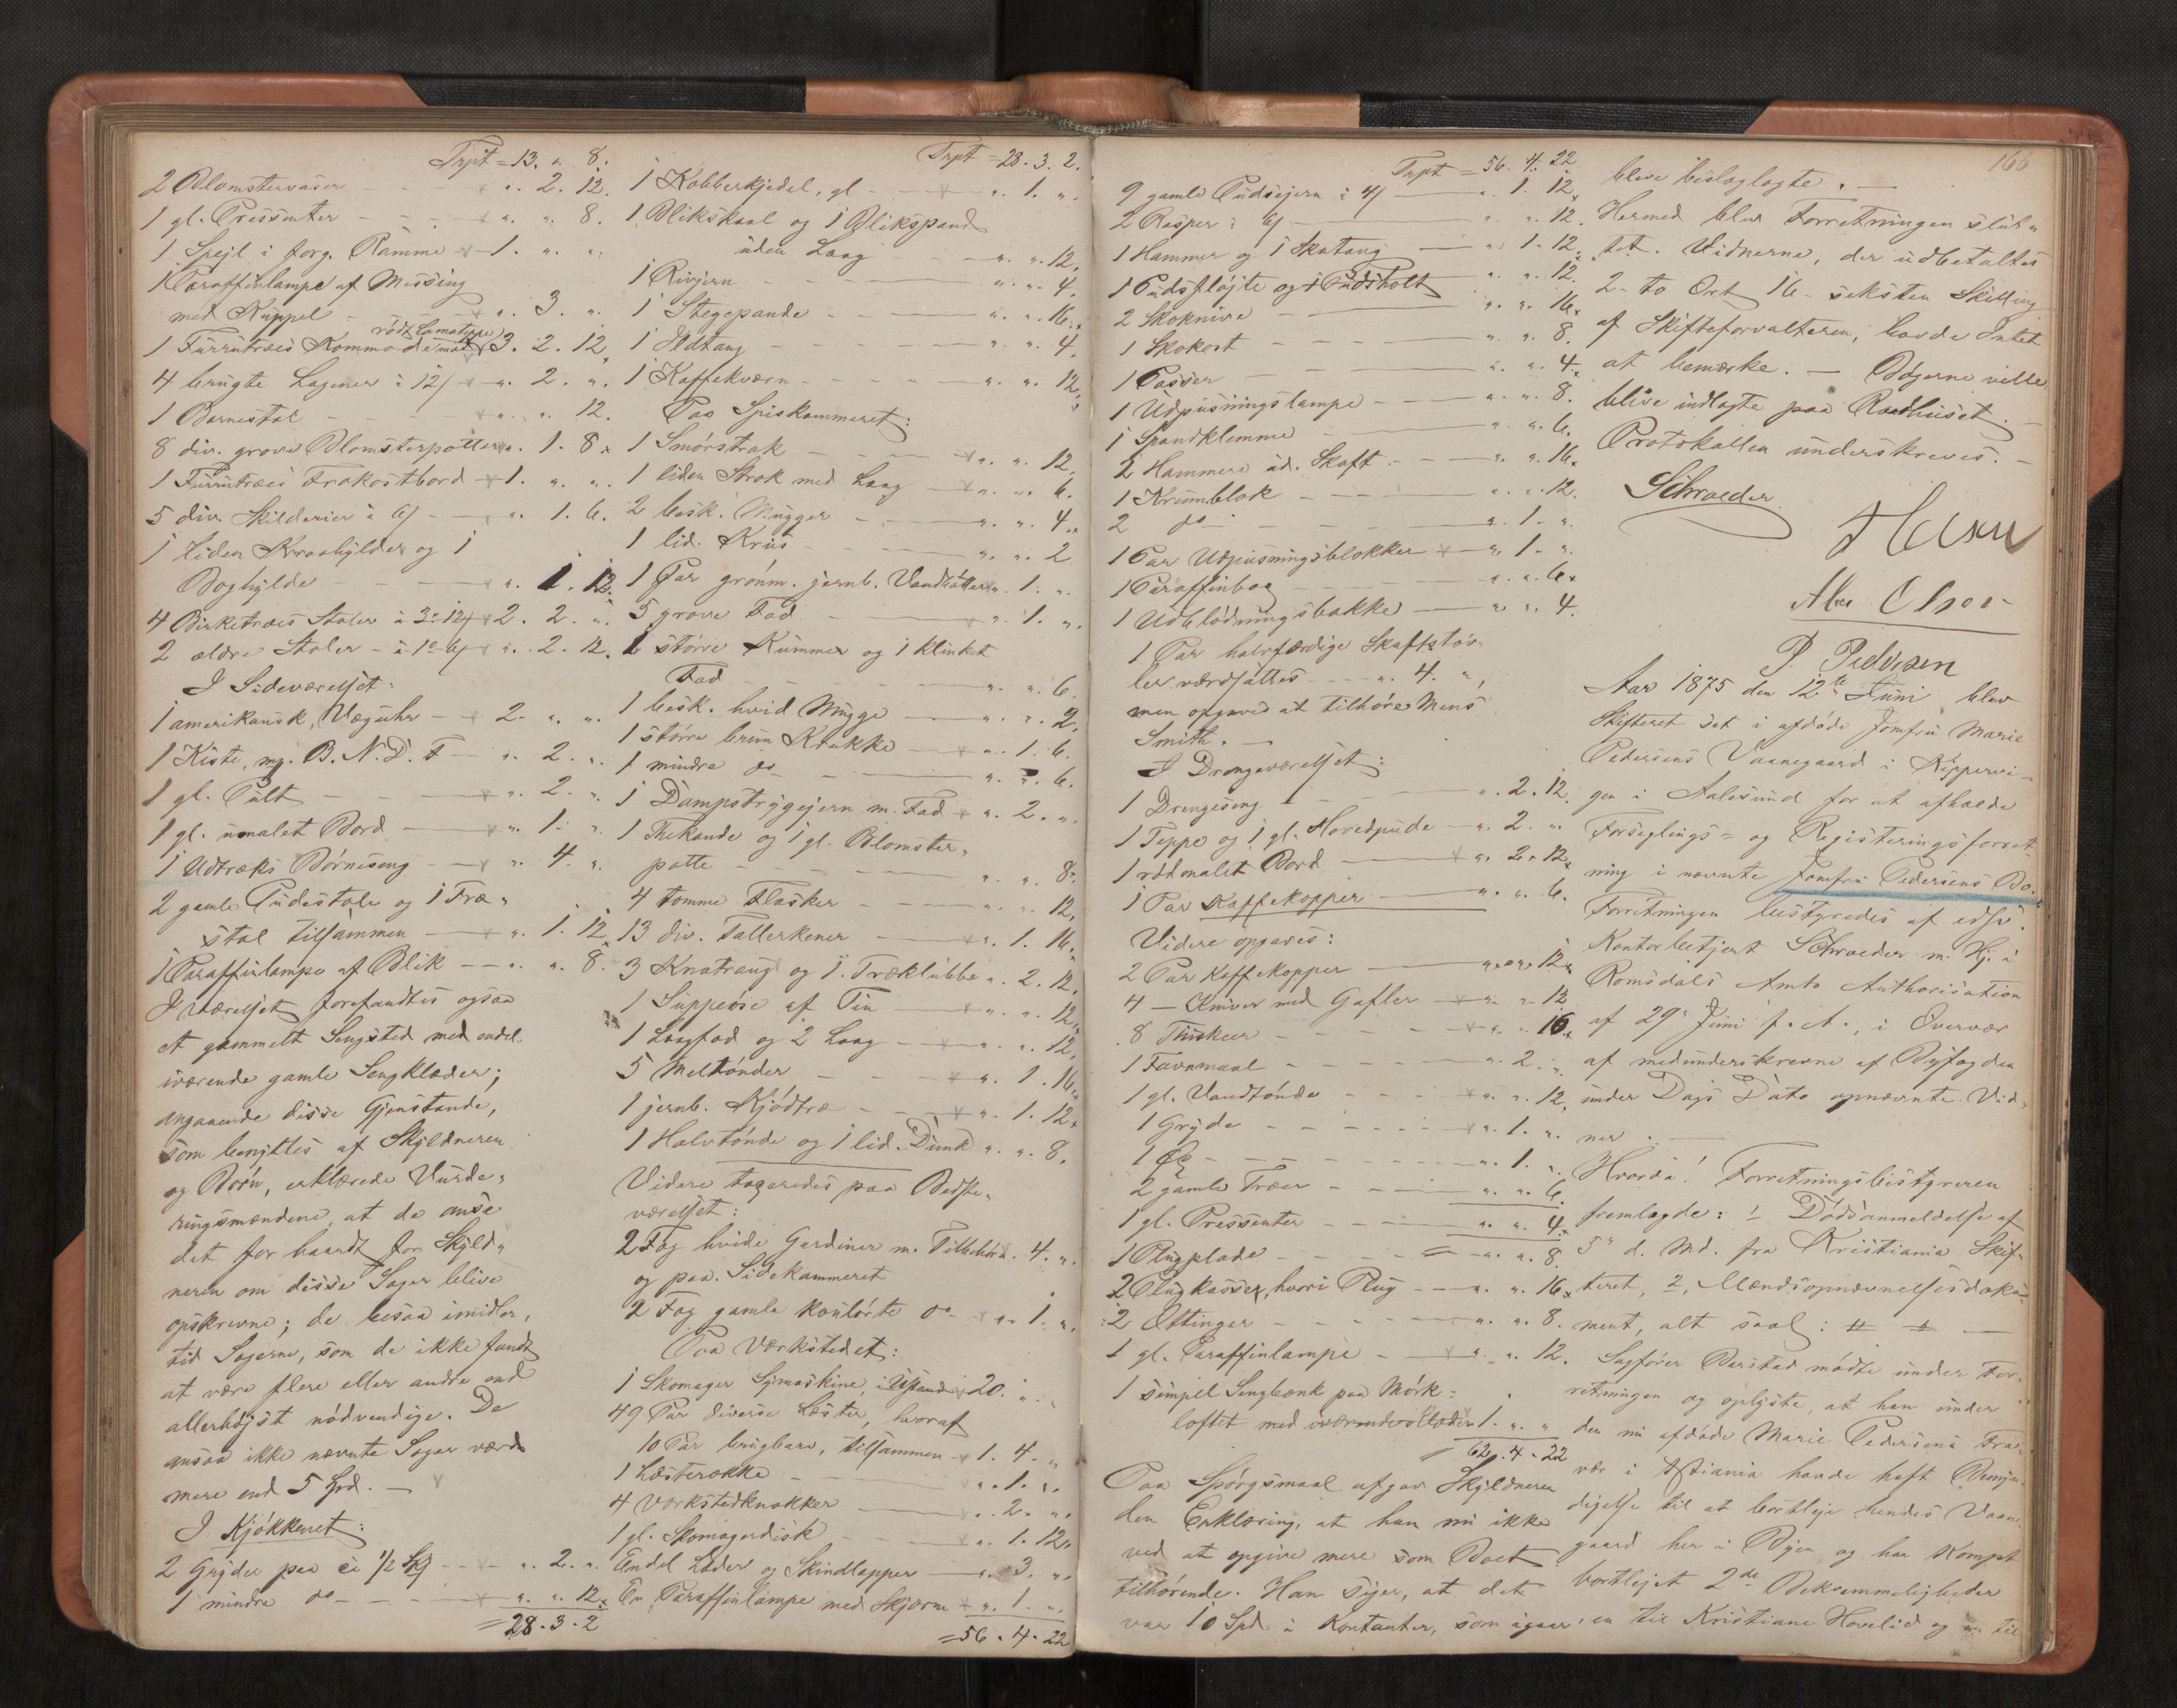 Trpt = 13. " 8.
2 Blomstervaser - - " 2. 12.
1 gl. Pressenter - - " " 8.
1 Spejl i forg. Ramme - 1. " "
1 Paraffinlampe af Messing
med Kuppel - " 3. "
rødt Damasttæppe
1 Furrutræes Kommode med 3. 2. 12.
4 brugte Lagener à 12/ - " 2. "
1 Barnestol - " " 12.
8 div. grove Blomsterpotter " 1. 8.
1 Furrutræes Frokostbord - 1. " "
5 div. Skilderier à 6/ - " 1. 6.
1 liden Kroahylder og 1
Boghylde - " 1. 12.
4 Birketræes Stoler à 3 " 12/ 2. 2. "
2 ældre Stoler - à 1 " 6/ " 2. 12.
I Sideværelset:
1 amerikansk Væguhr - 2. " "
1 Kiste, mg. B. N. D. F - " 2. "
1 gl. Pult - " 2. "
1 gl. umalet Bord - " 1. "
1 Udtræks Børneseng - " 4. "
2 gamle Pudestole og 1 Træ-
stol tilsammen - " 1. 12.
1 Paraffinlampe af Blik - " " 8.
I Værelset forefandtes ogsaa
et gammelt Sengsted med endel
iværende gamle Sengklæder;
angaaende disse Gjenstande,
som benyttes af Skyldneren
og Børn, erklærede Vurde-
ringsmændene, at de anse
det for haardt for Skyld-
neren om disse Sager blive
opskrevne; de besaa imidler-
tid Sagerne, som de ikke fandt
at være flere eller andre end
allerhøjst nødvendige. De
ansaa ikke nævnte Sager værd
mere end 5 Spd. -
I Kjøkkenet:
2 Gryder paa à 1/2 - " 2. "
1 mindre do - " " 12.
= 28. 3. 2
Trpt = 28. 3. 2.
1 Kobberkjedel, gl - " 1. "
1 Blikskaal og 1 Blikspand
uden Laag - " " 12.
1 Rivjern - " " 4.
1 Stegepande - " " 16.
1 Ildtang - " " 4.
1 Kaffekværn - " " 12.
Paa Spiskammeret:
1 Smørstrak - " " 12.
1 liden Strok med Laag - " " 6.
2 besk. Mugger - " " 4.
1 lid. Krus - " " 2
1 Par grønm. jernb. Vandbøtter " 1. "
5 grove Fad - " 1. "
1 større Kummer og 1 klinket
Fad - " " 6.
1 besk. hvid Mugge - " " 2.
1 større brun Krukke - " 1. 6.
1 mindre do - " " 6.
1 Dampstrygejern m. Fad " 2. "
1 Thekande og 1 gl. Blomster-
potte - " " 8.
4 tomme Flasker - " " 12.
13 div. Tallerkener - " 1. 16.
3 Knatraug og 1. Træklubbe " 2. 12.
1 Suppeøse af Tin - " " 12.
1 Laagfad og 2 Laag - " " 12.
5 Meltønder - " 1. 16.
1 jernb. Kjødtræ - " 1. 12.
1 Halvtønde og 1 lid. Dunk " " 8.
Videre toges paa Bedste-
værelset:
2 Fag hvide Gardiner m. Tilbehør . 4. "
og paa Sidekammeret
2 Fag gamle koulørte do - " 1. "
Paa Værkstedet:
1 Skomager Symaskine, i Ustand 20. "
49 Par diverse Læster, hvoraf
10 Par brugbare, tilsammen 1. 4. "
1 Læsterække - " 1. "
4 Værkstedknakker - " 2. "
1 gl. Skomagerdisk - " 1. 12.
Endel Læder og Skindlapper - " 3. "
En Paraffinlampe med Skjærm " 1. "
= 56. 4. 22
Trpt = 56. 4. 22
9 gamle Pudsejern à 4/ - 1. 12.
2 Rasper à 6/ - " " 12.
1 Hammer og 1 Skotang - " 1. 12.
1 Pudsfløjte og 1 Pudsholt " " 12.
2 Skoknive - " " 16.
1 Skokost - " " 8.
1 Passer - " " 4.
1 Udpusningslampe - " " 8.
1 Spandklemme - " " 6.
2 Hammere ud. Skaft - " " 16.
1 Krumblok - " " 12.
2 do - " 1. "
1 Par Udpusningsblokker - " 1. "
1 Paraffinbog - " " 6.
1 Udblødningsbakke - " " 4.
1 Par halvfærdige Skaftstøv-
ler værdsattes - " 4. "
men opgaves at tilhøre Mons
Smith. -
I Drengeværelset:
1 Drengeseng - " 2. 12.
1 Teppe og 1 gl. Hovedpude - " 2. "
1 rødmalet Bord - " 2. 12.
1 Par Kaffekopper - " " 6.
Videre opgaves:
2 Par Kaffekopper - " " 12.
4 - Kniver med Gafler - " " 12
8 Theskeer - " " 16.
1 Favnmaal - " 2. "
1 gl. Vandtønde - " " 12.
1 Gryde - " 1. "
1 Øx - " 1. "
2 gamle Træer - " " 6.
1 gl. Pressenter - " " 4.
1 Plugplade - " " 8.
2 Plugkasser, hvori Plug - " " 16.
2 Ottinger - " " 8.
1 gl. Paraffinlampe - " " 12.
1 simpel Sengbænk paa Mørk-
loftet med iværende Klæder 1. " "
62. 4. 22
Paa Spørgsmaal afgav Skyldneren
den Erklæring, at han nu ikke
ved at opgive mere som Boet
tilhørende. Han siger, at det
var 10 Spd i Kontanter, som igaar
166
bleve beslaglagte. -
Hermed blev Forretningen slut-
tet. Vidnerne, der udbetaltes
2 - to Ort 16 - seksten Skilling
af Skifteforvalteren, havde Intet
at bemærke. - Bøgerne ville
blive indlagte paa Raadhuset. -
Protokollen underskreves. -
Schrøeder
Olsen
P. Pedersen
Aar 1875 den 12te Juni blev
Skifteret sat i afdøde Jomfru Marie
Pedersens Vaanegaard i Kippervi-
gen i Aalesund for at afholde
Forseglings- og Registeringsforret-
ning i nævnte Jomfru Pedersens Bo.
Forretningen bestyredes af edsv.
Kontorbetjent Schrøeder m. Hj. i
Romsdals Amts Authorisation
af 29 Juni f. A., i Overvær
af medunderskrevne af Byfogden
under Dags Dato opnævnte Vid-
ner. -
Hvorda! Forretningsbestyreren
fremlagde: 1 Dødsanmeldelse af
5 d. Md. fra Kristiania Skif-
teret, 2, Mændsopnævnelsesdoku-
ment, alt saal:
Sagfører Barstad mødte under For-
retningen og oplyste, at han under
den nu afdøde Marie Pedersens Fra-
vær i Kristiania havde haft Bemyn-
digelse til at bortleje hendes Vaane-
gaard her i Byen og har Kompt
bortlejet 2de Beksemmeligheder
en til Kristiane Hovelid og en til